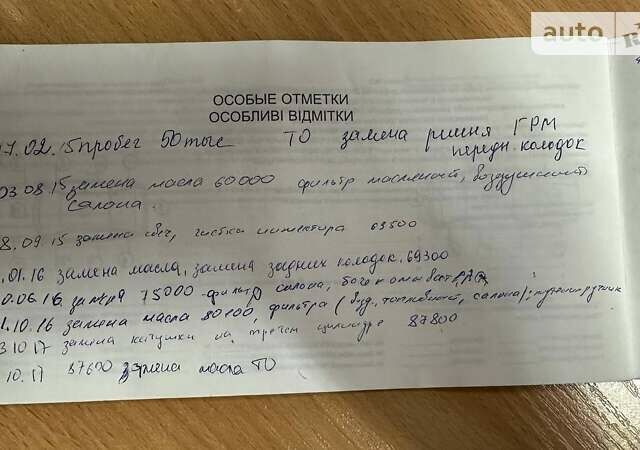 auto
ОСОБЫЕ ОТМЕТКИ
ОСОБЛИВІ ВІДМІТКИ
7.02.15 пробег 50 тыс ТО замена ремня ГРМ
передн. колодок
03.08.15 замена масла 60000 фильтр масленный, воздушный
салона.
8.09.15 замена свеч, чистка инжектора 63500
.01.16 замена масла, замена задних колодок. 69300
0.06.16 75000 фильтр салона,
.10.16 замена масла 80100, фильтра (возд, топливной, салона),
3 10 17 замена катушки на третьем цилиндре 87800
10.17 87600 замена масла ТО